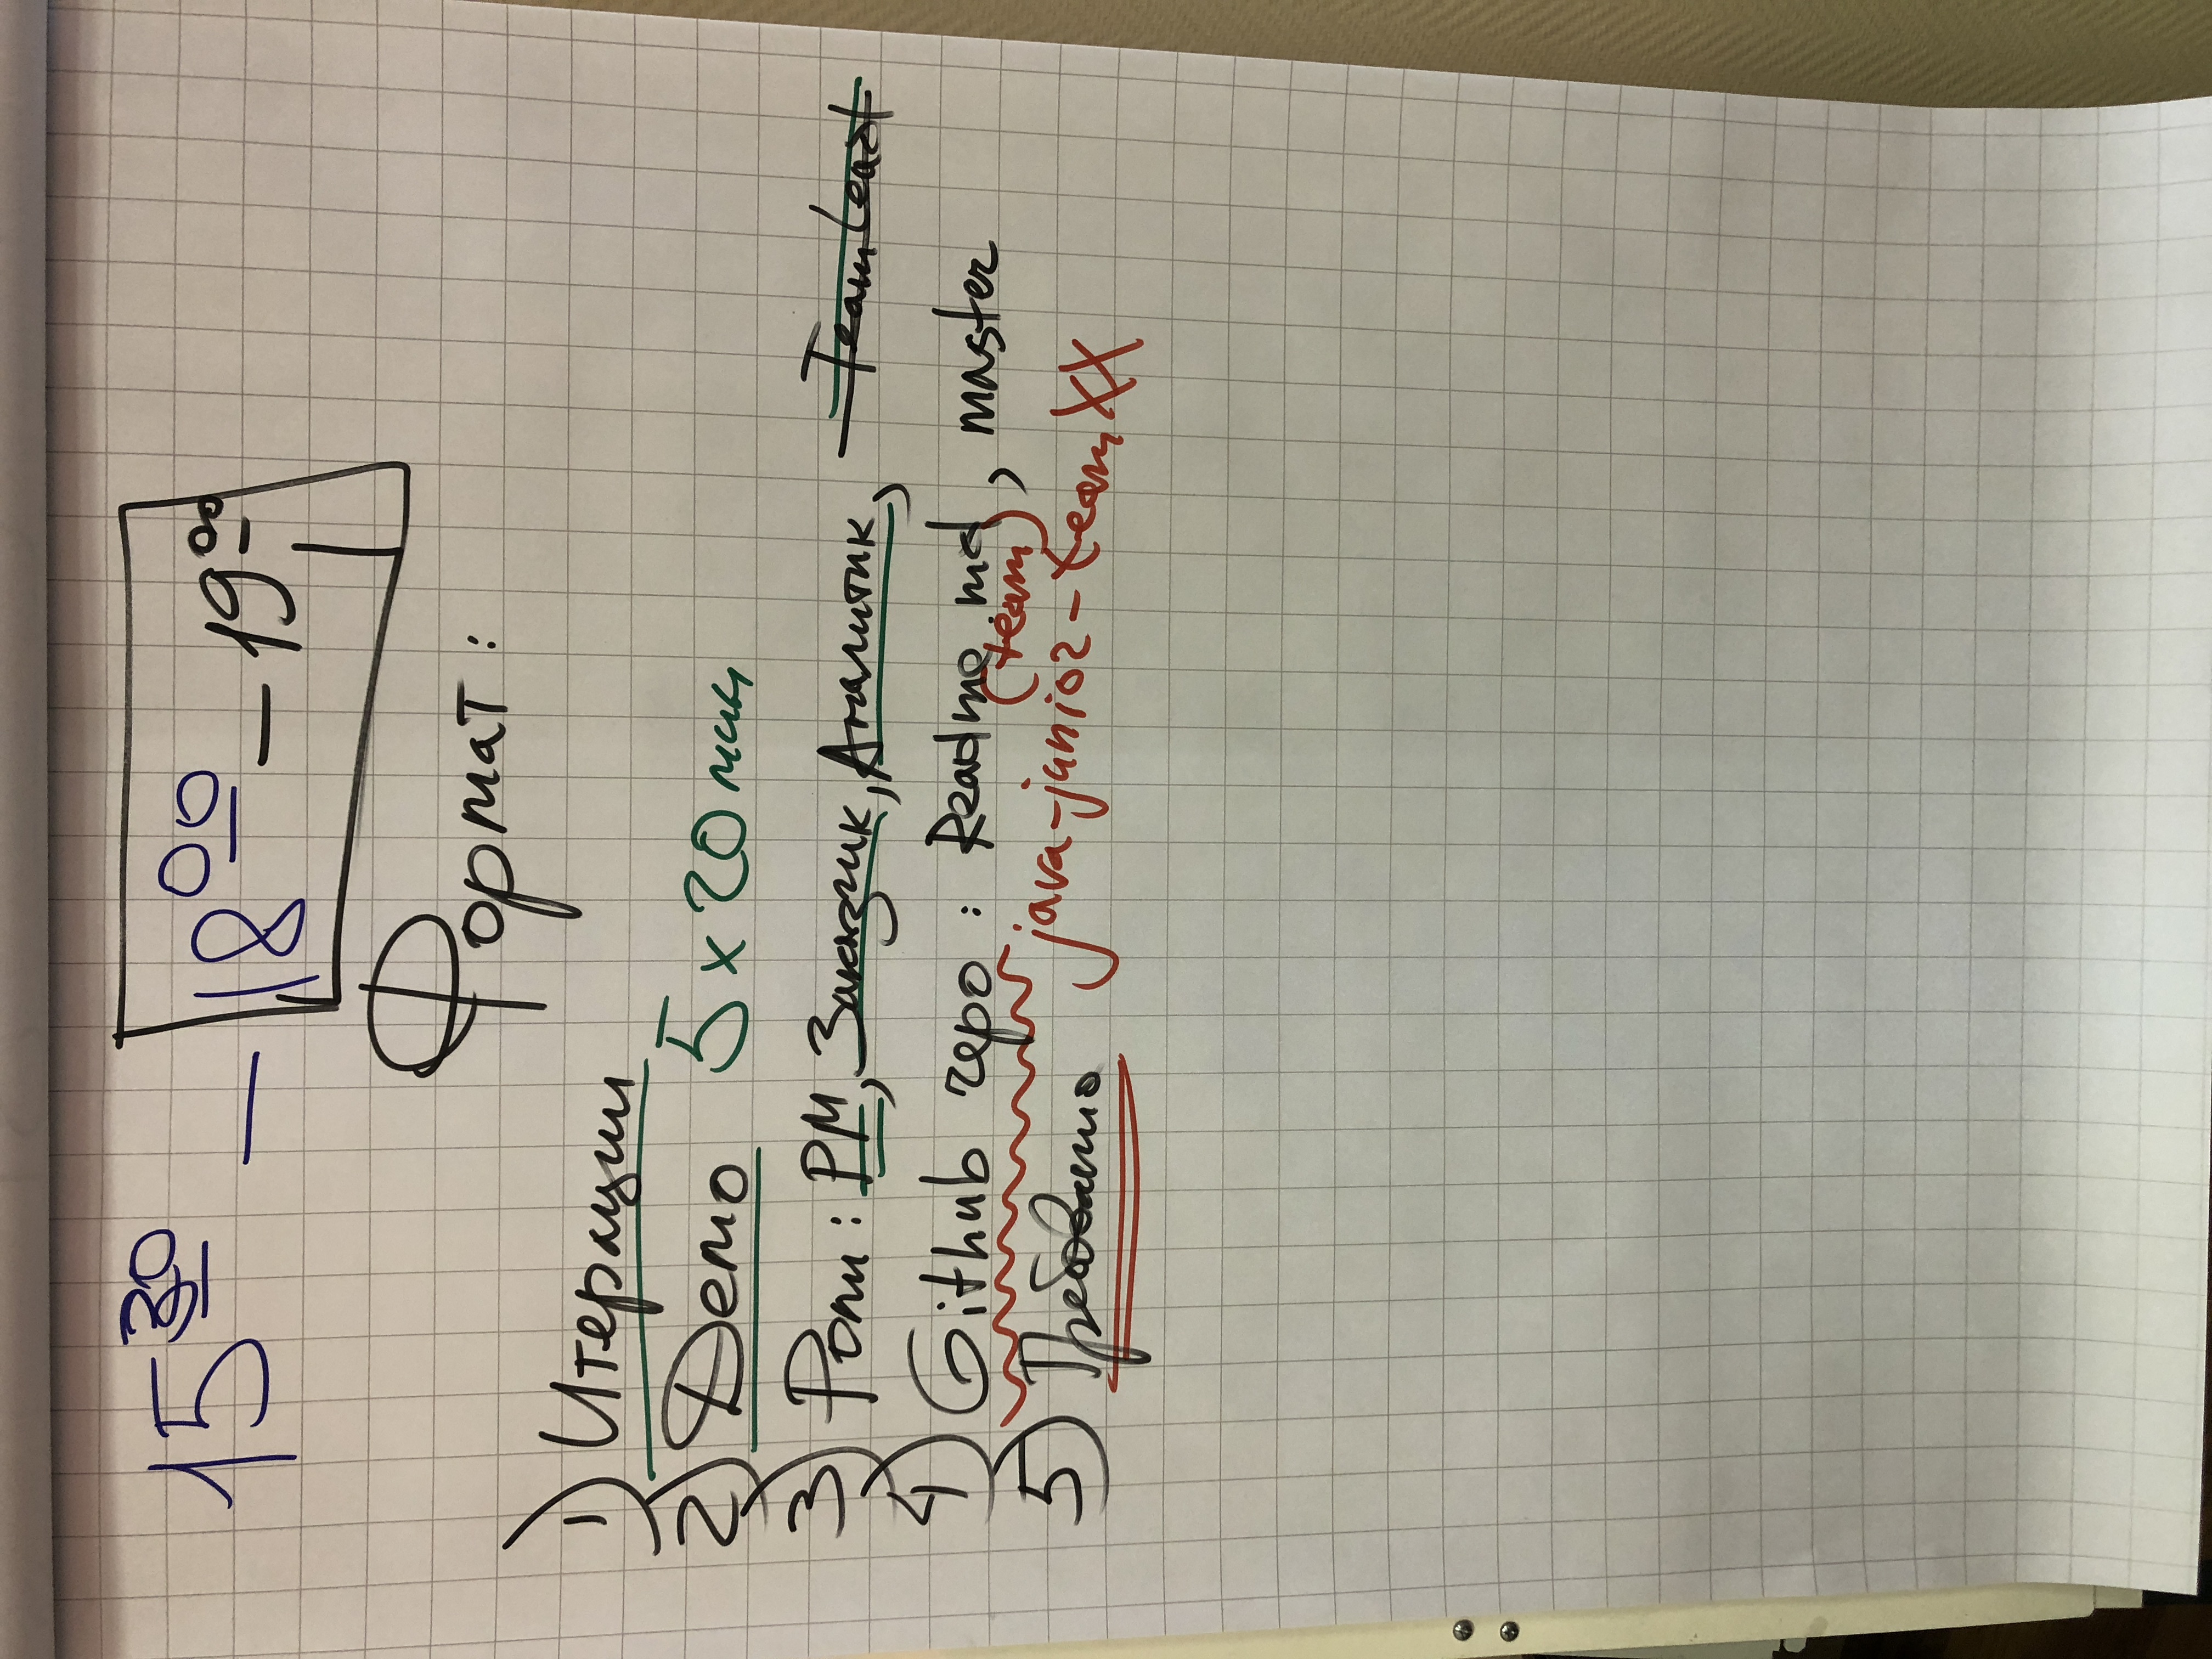 15 30 — 18 00 — 19 00
Формат:
1) Итерации
2) Демо 5 x 20 мин
3) Роли: PM, Заказчик, Аналитик, TeamLead
4) Github repo: Readme.md, master
(team)
java-junior-teamXX
5)